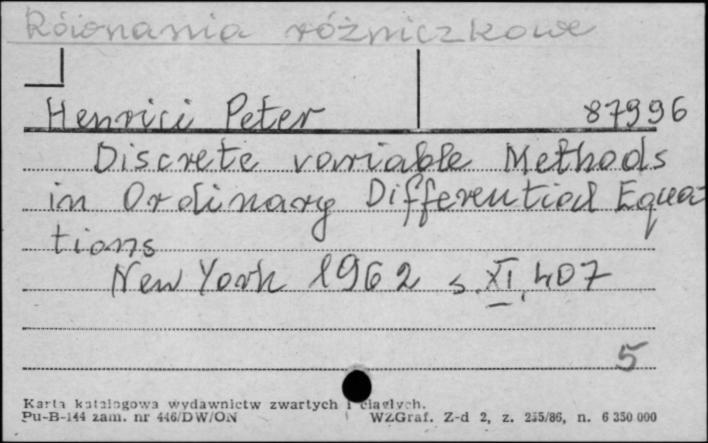 Równania różniczkowe
Henrici Peter 87996
Discrete variable Methods
in Ordinary Differential Equa-
tions
New York 1962 s. XI, 407
5
Karta katalogowa wydawnictw zwartych i ciągłych.
Pu-B-144 zam. nr 446/DW/ON WZGraf. Z-d 2, z. 255/86, n. 6 350 000